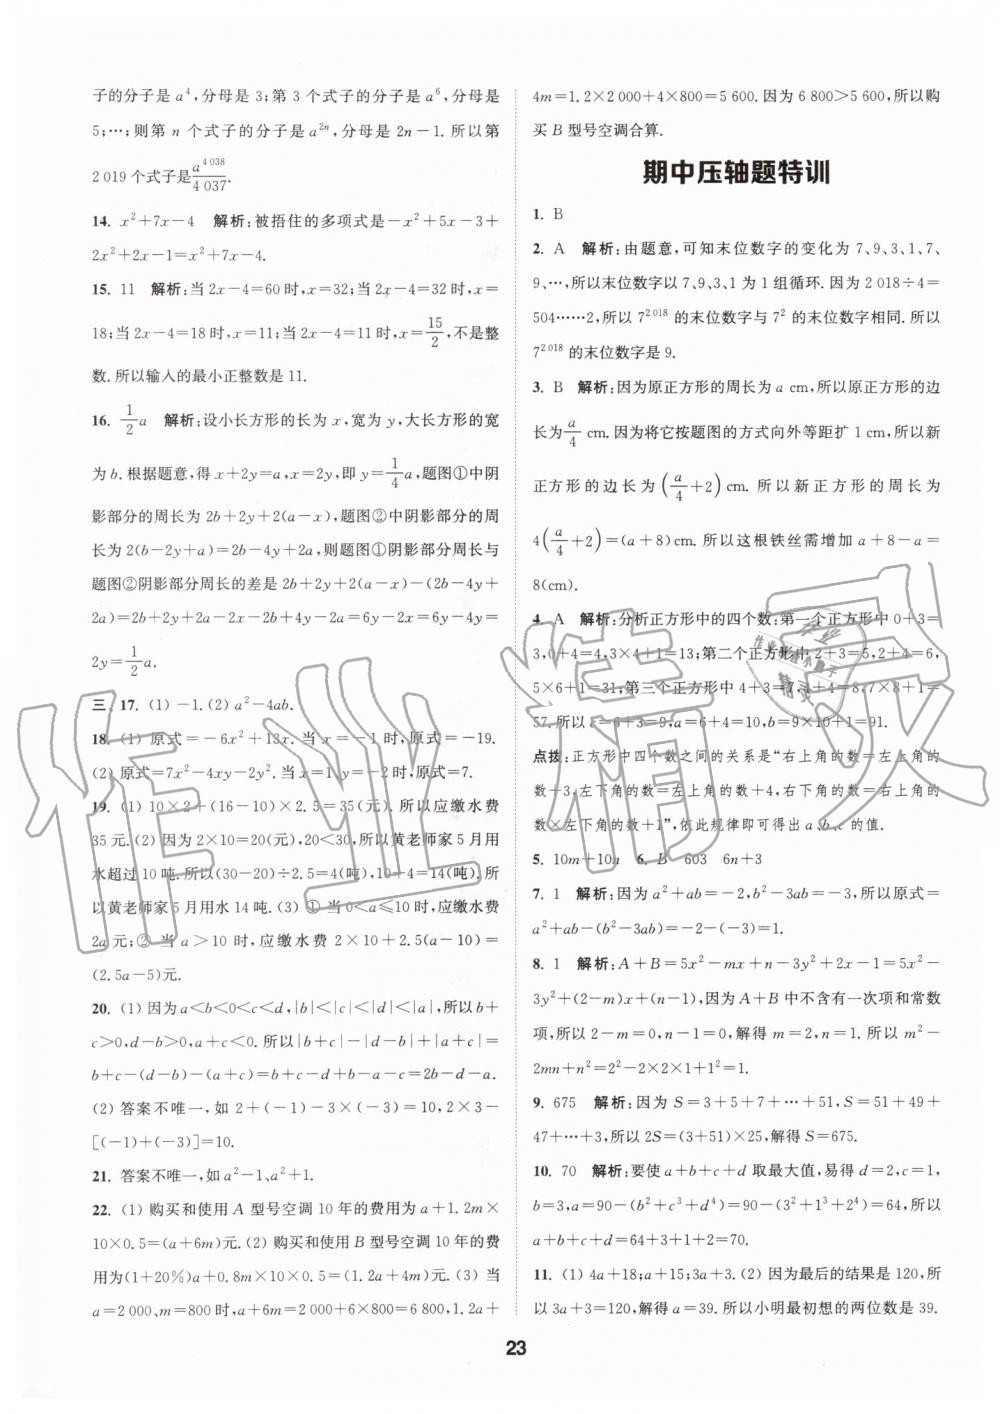 子的分子是 a⁴,分母是 3;第 3 个式子的分子是 a⁶,分母是
5;…;则第 n 个式子的分子是 a²ⁿ,分母是 2n−1. 所以第
2 019 个式子是 a^{4 038}/4 037.
14. x²+7x−4 解析:被捂住的多项式是−x²+5x−3+
2x²+2x−1=x²+7x−4.
15. 11 解析:当 2x−4=60 时,x=32;当 2x−4=32 时,x=
18;当 2x−4=18 时,x=11;当 2x−4=11 时,x=15/2,不是整
数. 所以输入的最小正整数是 11.
16. 1/2 a 解析:设小长方形的长为 x,宽为 y,大长方形的宽
为 b. 根据题意,得 x+2y=a,x=2y,即 y=1/4 a,题图①中阴
影部分的周长为 2b+2y+2(a−x),题图②中阴影部分的周
长为 2(b−2y+a)=2b−4y+2a,则题图①阴影部分周长与
题图②阴影部分周长的差是 2b+2y+2(a−x)−(2b−4y+
2a)=2b+2y+2a−2x−2b+4y−2a=6y−2x=6y−4y=
2y=1/2 a.
三、17. (1) −1. (2) a²−4ab.
18. (1) 原式=−6x²+13x. 当 x=−1 时,原式=−19.
(2) 原式=7x²−4xy−2y². 当 x=1,y=−2 时,原式=7.
19. (1) 10×2+(16−10)×2.5=35(元). 所以应缴水费
35 元. (2) 因为 2×10=20(元),20<30,所以黄老师家 5 月用
水超过 10 吨. 所以(30−20)÷2.5=4(吨),10+4=14(吨). 所
以黄老师家 5 月用水 14 吨. (3) ① 当 0<a≤10 时,应缴水费
2a 元;② 当 a>10 时,应缴水费 2×10+2.5(a−10)=
(2.5a−5)元.
20. (1) 因为 a<b<0<c<d,|b|<|c|<|d|<|a|,所以 b+
c>0,d−b>0,a+c<0. 所以|b+c|−|d−b|+|a+c|=
b+c−(d−b)−(a+c)=b+c−d+b−a−c=2b−d−a.
(2) 答案不唯一,如 2+(−1)−3×(−3)=10,2×3−
[(−1)+(−3)]=10.
21. 答案不唯一,如 a²−1、a²+1.
22. (1) 购买和使用 A 型号空调 10 年的费用为 a+1.2m×
10×0.5=(a+6m)元. (2) 购买和使用 B 型号空调 10 年的费
用为(1+20%)a+0.8m×10×0.5=(1.2a+4m)元. (3) 当
a=2 000、m=800 时,a+6m=2 000+6×800=6 800,1.2a+
4m=1.2×2 000+4×800=5 600. 因为 6 800>5 600,所以购
买 B 型号空调合算.
期中压轴题特训
1. B
2. A 解析:由题意,可知末位数字的变化为 7、9、3、1、7、
9、…,所以末位数字以 7、9、3、1 为 1 组循环. 因为 2 018÷4=
504……2,所以 7^{2 018} 的末位数字与 7² 的末位数字相同. 所以
7^{2 018} 的末位数字是 9.
3. B 解析:因为原正方形的周长为 a cm,所以原正方形的边
长为 a/4 cm. 因为将它按题图的方式向外等距扩 1 cm,所以新
正方形的边长为 (a/4+2) cm. 所以新正方形的周长为
4(a/4+2)=(a+8)cm. 所以这根铁丝需增加 a+8−a=
8(cm).
4. A 解析:分析正方形中的四个数:第一个正方形中 0+3=
3,0+4=4,3×4+1=13;第二个正方形中 2+3=5,2+4=6,
5×6+1=31,第三个正方形中 4+3=7,4+4=8,7×8+1=
57. 所以 c=6+3=9,a=6+4=10,b=9×10+1=91.
点拨:正方形中四个数之间的关系是“右上角的数=左上角的
数+3,左下角的数=左上角的数+4,右下角的数=右上角的
数×左下角的数+1”,依此规律即可得出 a、b、c 的值.
5. 10m+10n 6. B 603 6n+3
7. 1 解析:因为 a²+ab=−2,b²−3ab=−3,所以原式=
a²+ab−(b²−3ab)=−2−(−3)=1.
8. 1 解析:A+B=5x²−mx+n−3y²+2x−1=5x²−
3y²+(2−m)x+(n−1),因为 A+B 中不含有一次项和常数
项,所以 2−m=0,n−1=0,解得 m=2,n=1. 所以 m²−
2mn+n²=2²−2×2×1+1²=1.
9. 675 解析:因为 S=3+5+7+…+51,S=51+49+
47+…+3,所以 2S=(3+51)×25,解得 S=675.
10. 70 解析:要使 a+b+c+d 取最大值,易得 d=2,c=1,
b=3,a=90−(b²+c³+d⁴)=90−(3²+1³+2⁴)=64,所以
a+b+c+d=64+3+1+2=70.
11. (1) 4a+18;a+15;3a+3. (2) 因为最后的结果是 120,所
以 3a+3=120,解得 a=39. 所以小明最初想的两位数是 39.
23
作业精灵